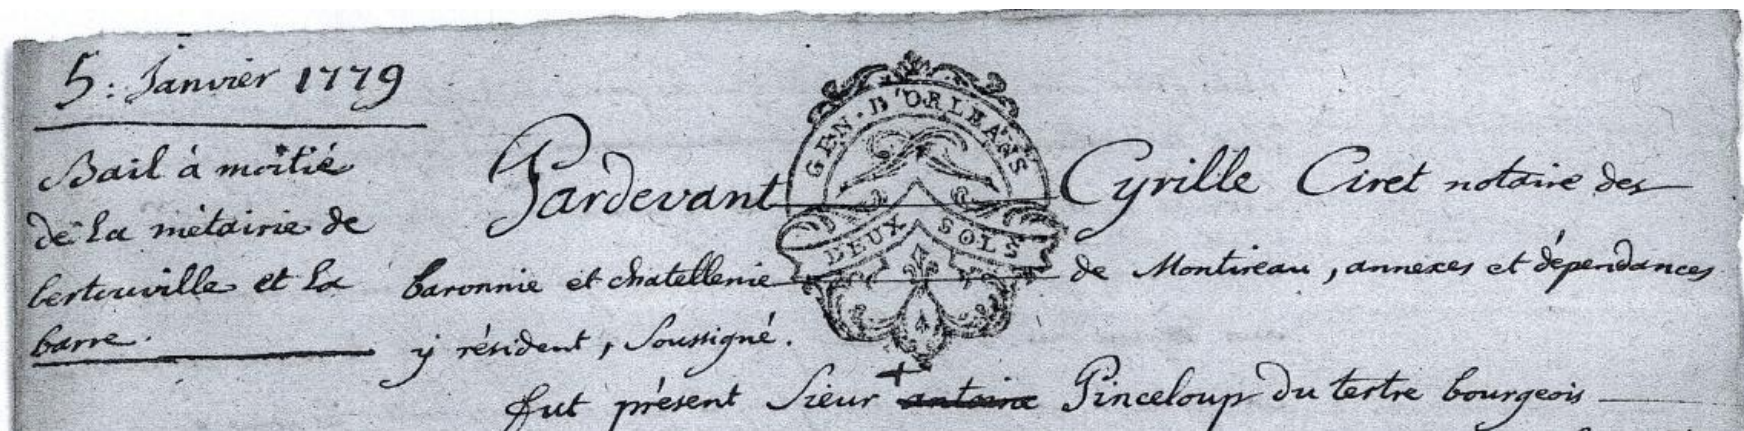 5: Janvier 1779
Bail à moitié
de La métairie de
bertouville et La
barre.
GEN·D'ORLEANS
DEUX SOLS
Pardevant Cyrille Ciret notaire des
baronnie et chatellenie de Montireau, annexes et dépendances
y résident, Soussigné.
fut présent Sieur + antoine Pinceloup du tertre bourgeois